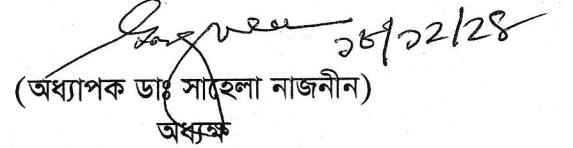 ১৮/১২/২৪
(অধ্যাপক ডাঃ সাহেলা নাজনীন)
অধ্যক্ষ